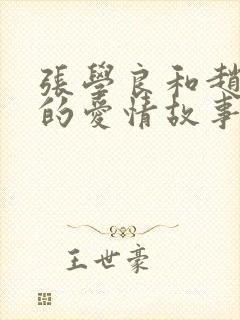 張學良和趙
的愛情故事
王世豪